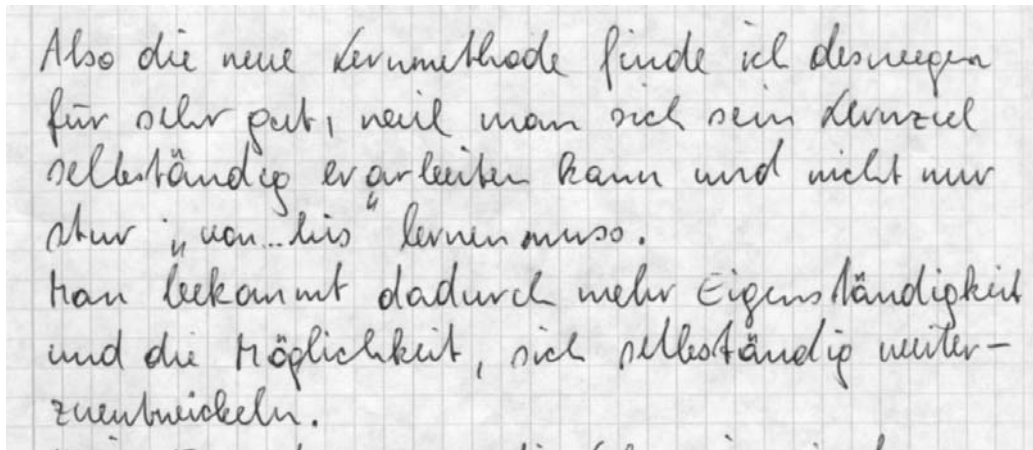 Also die neue Lernmethode finde ich deswegen
für sehr gut, weil man sich sein Lernziel
selbständig erarbeiten kann und nicht nur
stur „von...bis“ lernen muss.
Man bekommt dadurch mehr Eigenständigkeit
und die Möglichkeit, sich selbständig weiter-
zuentwickeln.